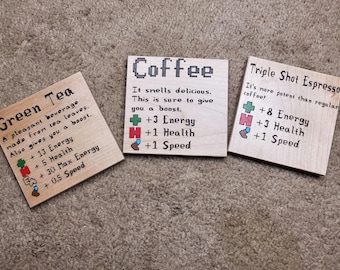 Green Tea
A pleasant beverage
made from tea leaves.
Also gives you a boost.
+ 13 Energy
+ 5 Health
+ 30 Max Energy
+ 0.5 Speed
Coffee
It smells delicious.
This is sure to give
you a boost.
+3 Energy
+1 Health
+1 Speed
Triple Shot Espresso
It's more potent than regular
coffee!
+ 8 Energy
+3 Health
+1 Speed